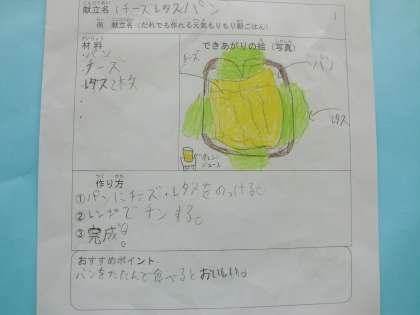 献立名 チーズレタスパン
例 献立名（だれでも作れる元気もりもり朝ごはん）
材料
できあがりの絵（写真）
・パン
チーズ
レタス2枚
チーズ
パン
レタス
オレンジ
ジュース
作り方
①パンにチーズ・レタスをのっける。
②レンジでチンする。
③完成。
おすすめポイント
パンをたたんで食べるとおいしい。